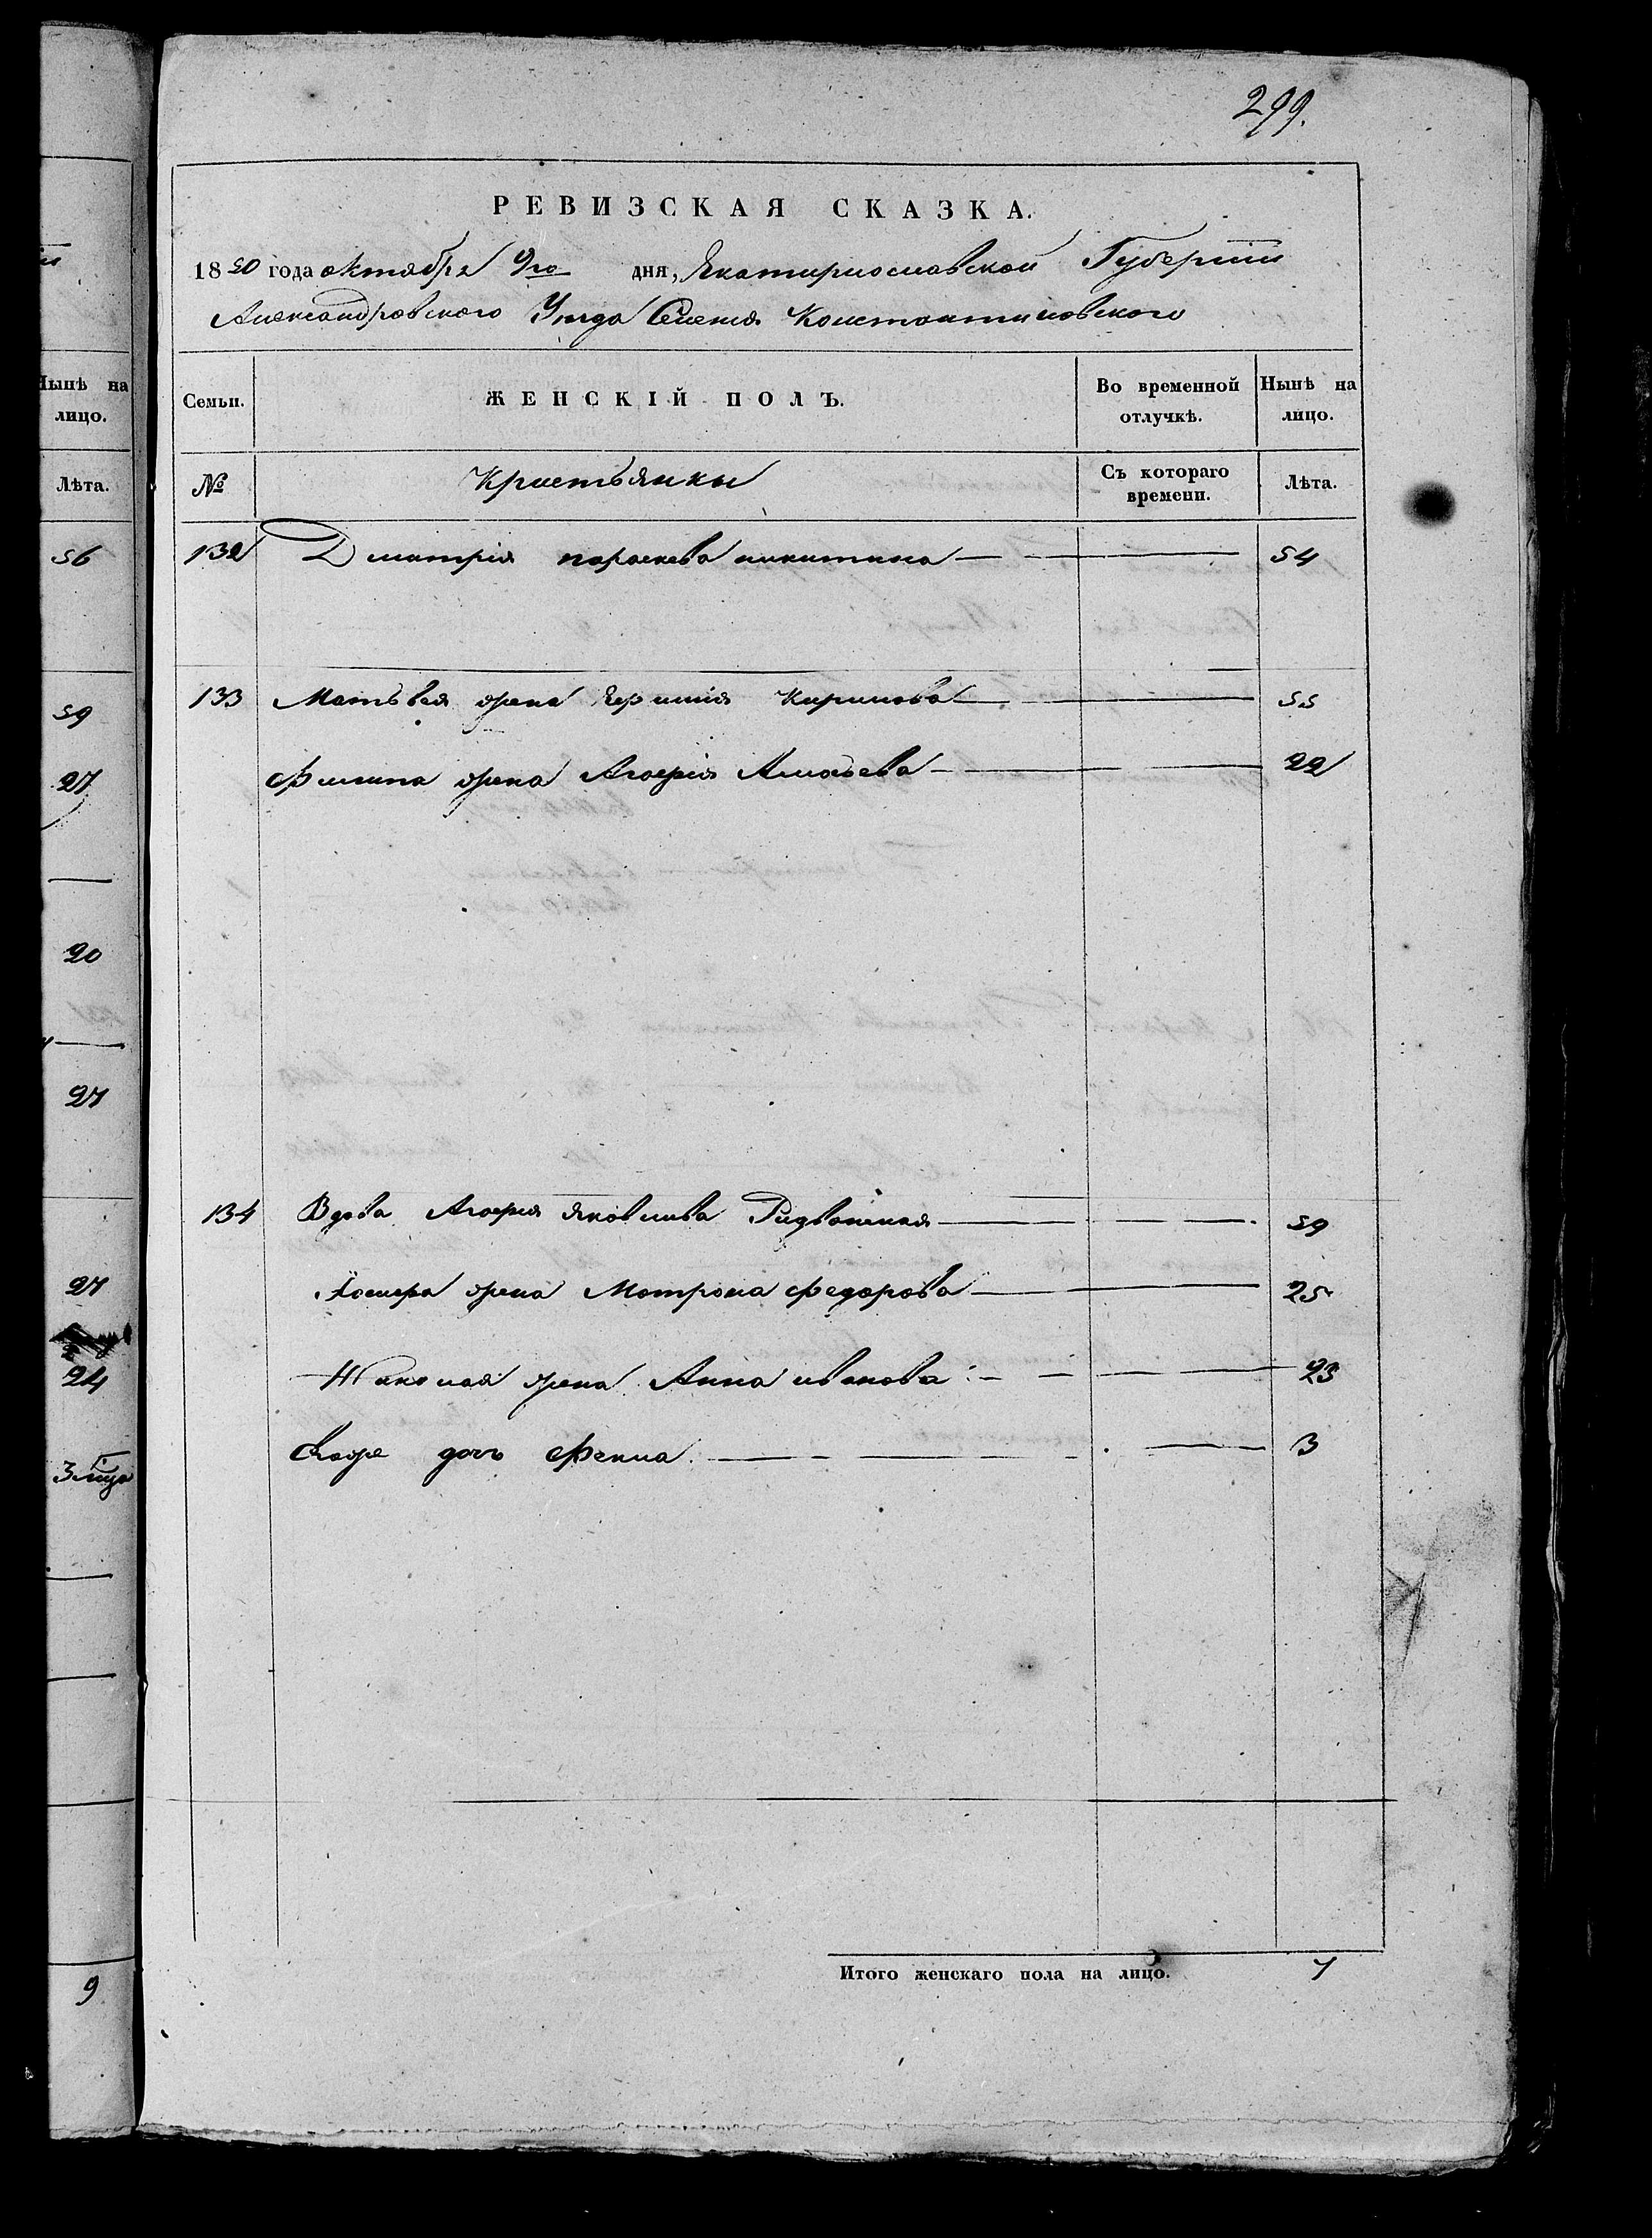 299.
РЕВИЗСКАЯ СКАЗКА.
1850 года октября 9го дня, Екатиринославской Губернии
Александровского Уезда Селения Константиновского
Нынѣ на лицо.
Семьи. ЖЕНСКІЙ ПОЛЪ. Во временной отлучкѣ. Нынѣ на лицо.
Лѣта.
№ Кристьянки Съ котораго времени. Лѣта.
56
132 Дмитрія параскева никитина 54
59
133 Матьвея жена Кирилова 55
27
Филипа жена Агафия 22
20
27
134 Вдова Агафия яковлива 59
27
жена Матрона федорова 25
24
Николая жена Анна иванова 23
3
Его же дочь Фекла 3
9
Итого женскаго пола на лицо. 7